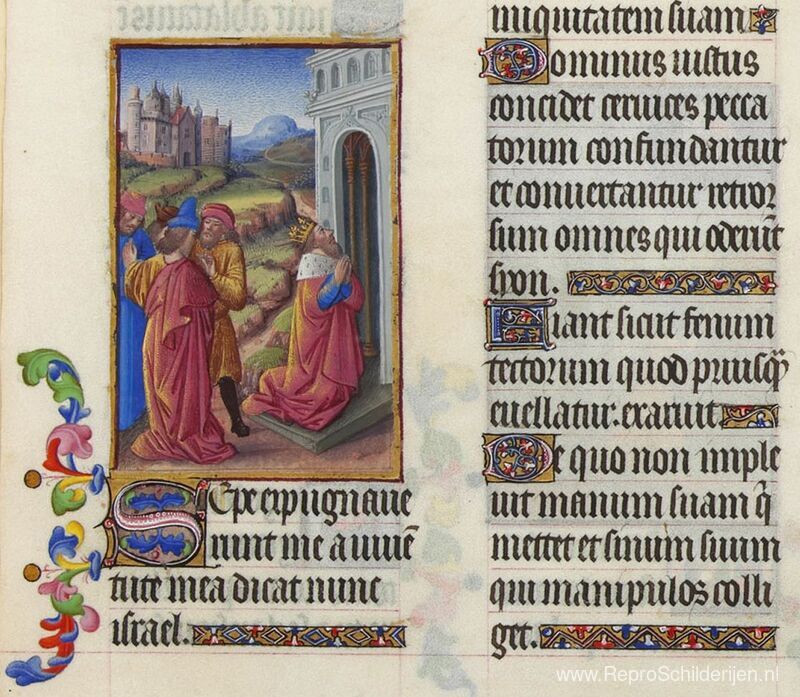 Sepe expugnaue
runt me a iuuē
tute mea dicat nunc
israel.
iniquitatem suam
Dominus iustus
concidet ceruices pecca
torum confundantur
et conuertantur retror
sum omnes qui oderūt
syon.
Fiant sicut fenum
tectorum quod priusq̄
euellatur. exaruit
De quo non imple
uit manum suam q̄
mettet et sinum suum
qui manipulos colli
get.
www.ReproSchilderijen.nl